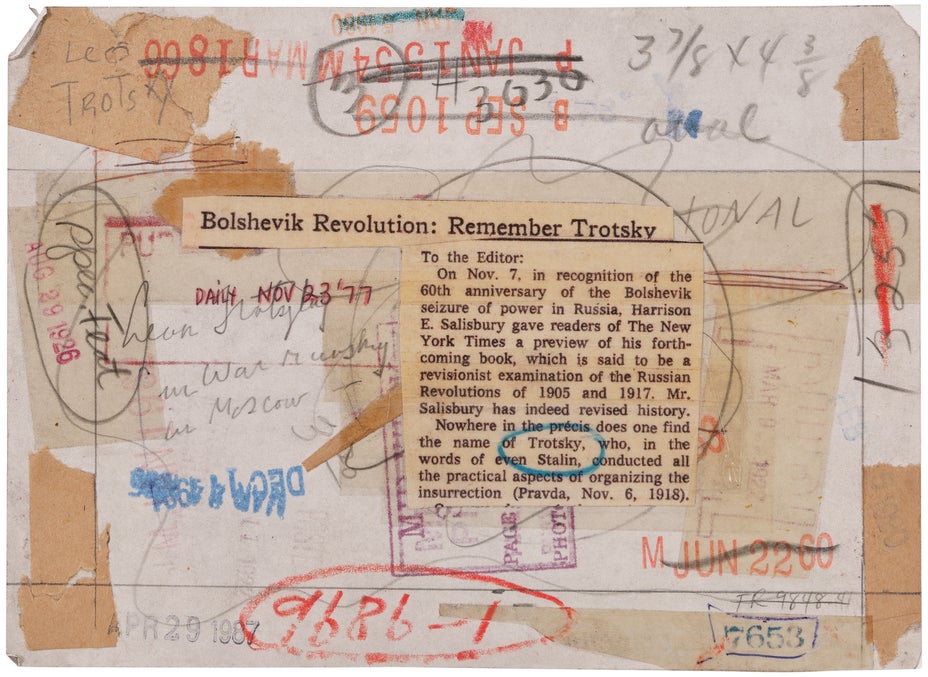 Leo
TROTSKY
MAR 18 66
M JAN 15 54
P
3
# 3630
B SEP 10 59
3 7/8 X 4 3/8
oval
ONAL
3253
AUG 29 1926
Bolshevik Revolution: Remember Trotsky
DAILY NOV 23 '77
Leon Trotsky
in War Ministry
in Moscow
To the Editor:
On Nov. 7, in recognition of the
60th anniversary of the Bolshevik
seizure of power in Russia, Harrison
E. Salisbury gave readers of The New
York Times a preview of his forth-
coming book, which is said to be a
revisionist examination of the Russian
Revolutions of 1905 and 1917. Mr.
Salisbury has indeed revised history.
Nowhere in the précis does one find
the name of Trotsky, who, in the
words of even Stalin, conducted all
the practical aspects of organizing the
insurrection (Pravda, Nov. 6, 1918).
MAR 9 1922
8
PAGE
PHOTO
M JUN 22 60
TR 9848-41
APR 29 1987
9686-1
7653